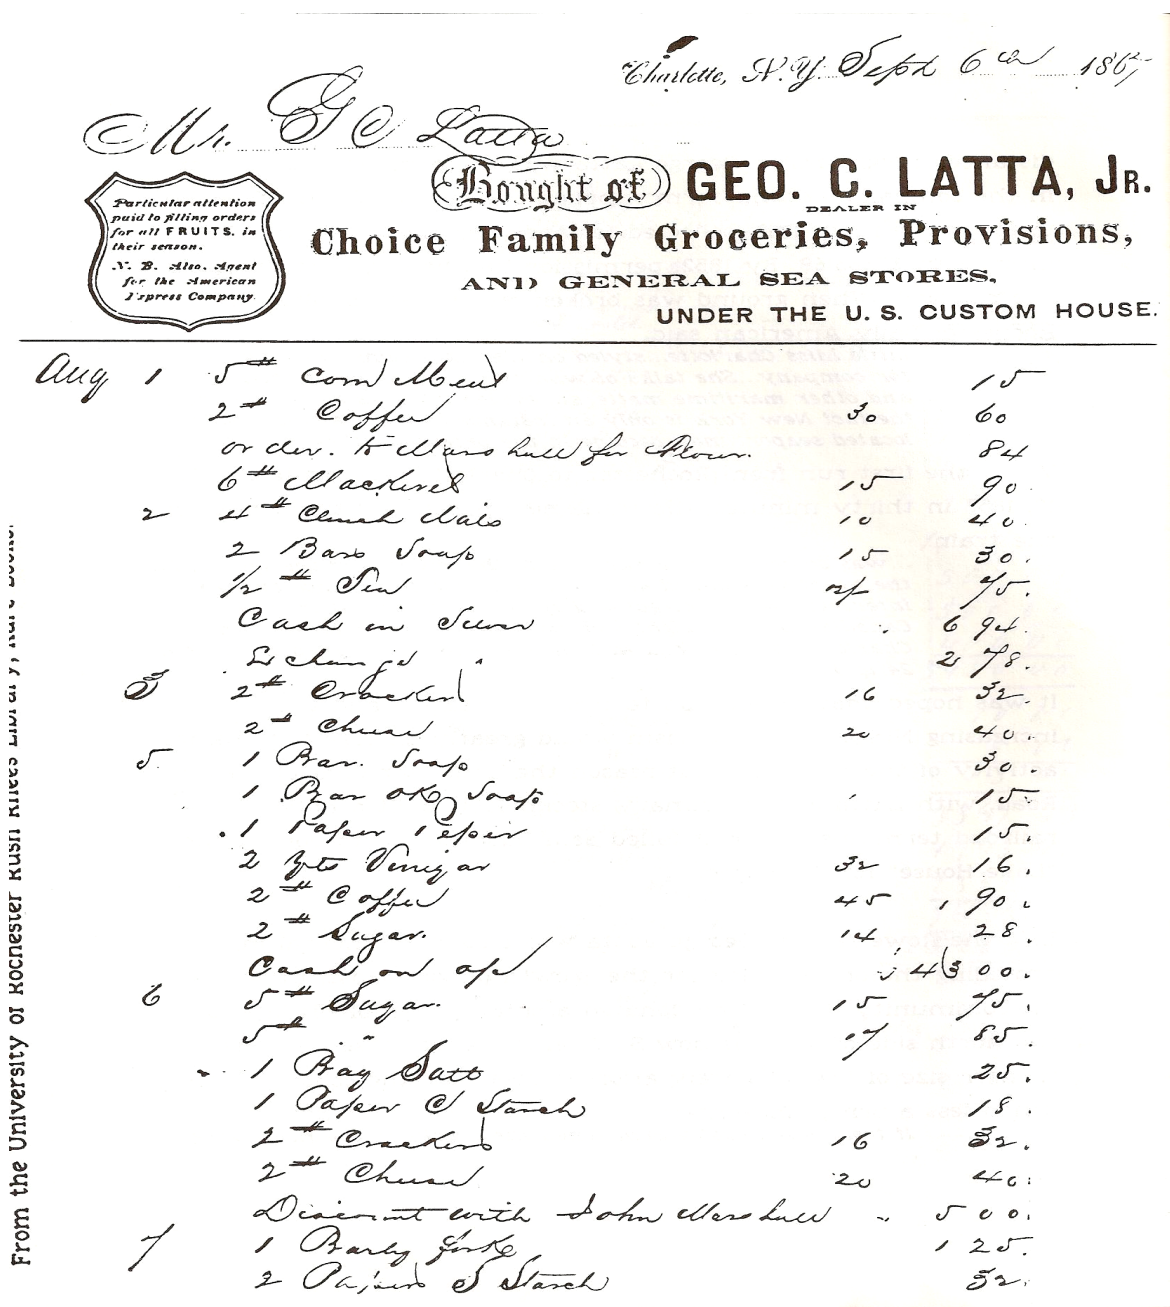 Charlotte, N.Y. Sept 6th 1867
Mr. G C Latta
Bought of GEO. C. LATTA, JR.
DEALER IN
Choice Family Groceries, Provisions,
AND GENERAL SEA STORES,
UNDER THE U. S. CUSTOM HOUSE.
Particular attention
paid to filling orders
for all FRUITS, in
their season.
N. B. Also, Agent
for the American
Express Company.
Aug 1 5# Corn Meal 15
2# Coffee 30 60
order. to Marshall for Flour. 84
6# Mackerel 15 90
2 4# Nails 10 40
2 Bars Soap 15 30.
1/2 # Tea 2/ 75.
Cash in Silver 6 94.
Exchange " 2 78.
3 2# Crackers 16 32
2# Cheese 20 40.
5 1 Bar. Soap 30.
1 Bar Soap 15
1 Paper Peper 15.
2 qts Vinigar 32 16.
2# Coffee 45 90.
2# Sugar. 14 28.
Cash on a/c 43 00.
6 5# Sugar. 15 75.
5# " 17 85.
1 Bag Salt 25.
1 Paper C Starch 18.
2# Crackers 16 32.
2# Cheese 20 40.
Discount with John Marshall " 5 00.
7 1 Barly forke 1 25.
2 Papers S Starch 32.
From the University of Rochester Rush Rhees Library, Rare Books.